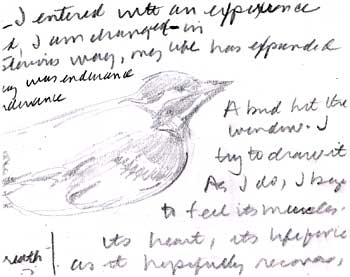 I entered with an experience
I am changed in
way, my life has expanded
was endurance
A bird hit the
window. I
try to draw it
As I do, I begin
to feel its muscles.
its heart, its life force
as it hopefully recovers,